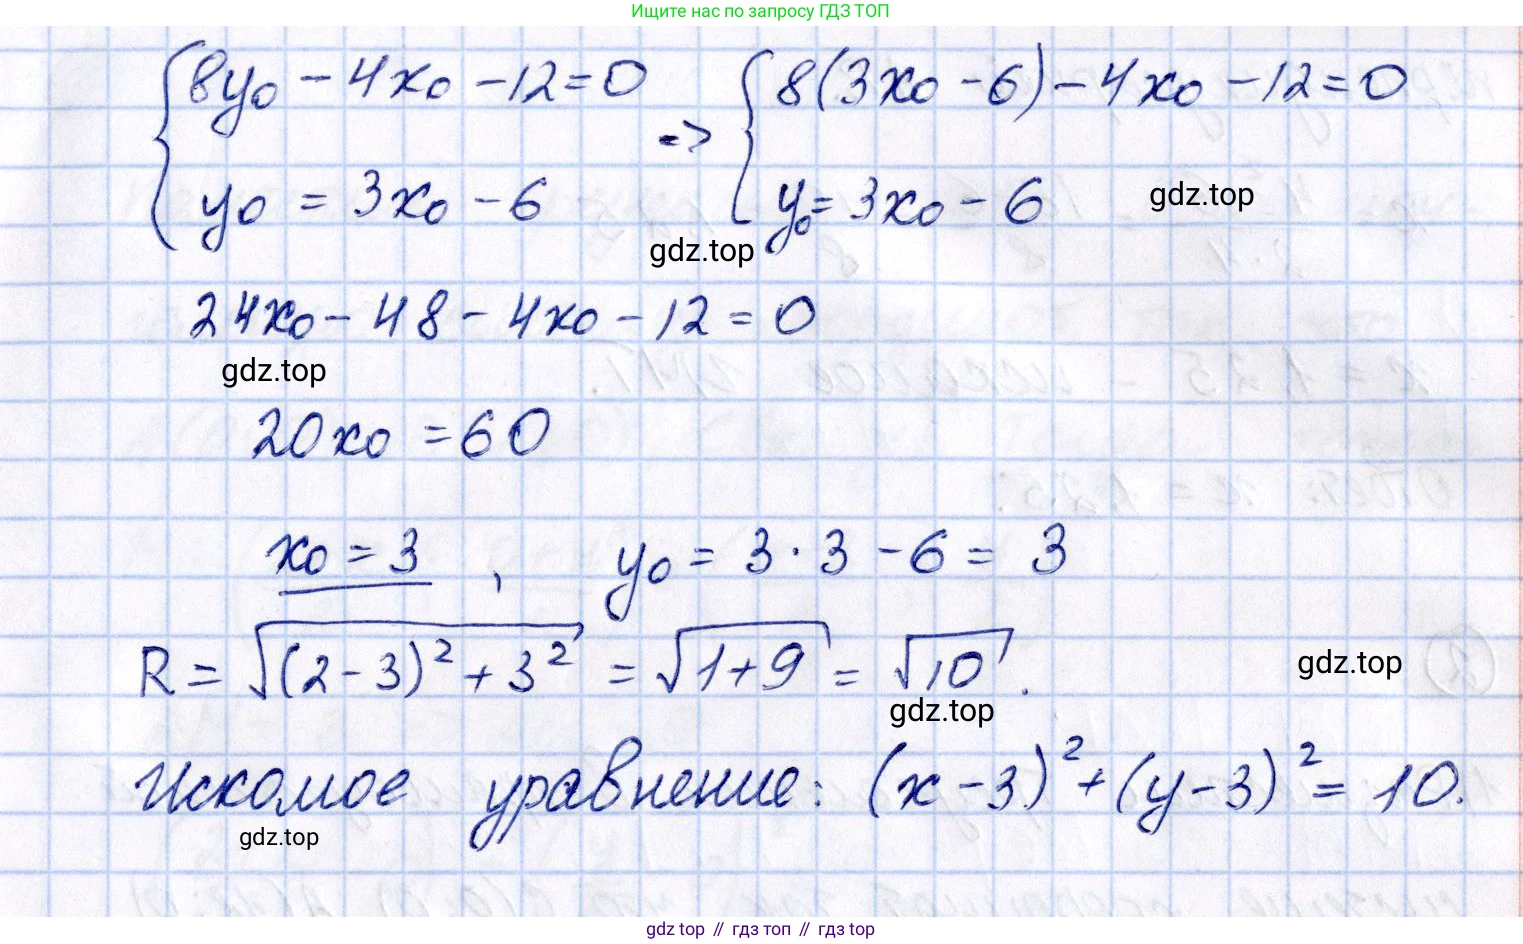 Ищите нас по запросу ГДЗ ТОП
{8y₀ − 4x₀ − 12 = 0 => {8(3x₀ − 6) − 4x₀ − 12 = 0
y₀ = 3x₀ − 6 y₀ = 3x₀ − 6 gdz.top
gdz.top
24x₀ − 48 − 4x₀ − 12 = 0
gdz.top
20x₀ = 60
x₀ = 3 , y₀ = 3 · 3 − 6 = 3
R = √((2 − 3)² + 3²) = √(1 + 9) = √10 . gdz.top
gdz.top
Искомое уравнение: (x − 3)² + (y − 3)² = 10.
gdz.top
gdz top // гдз топ // gdz top